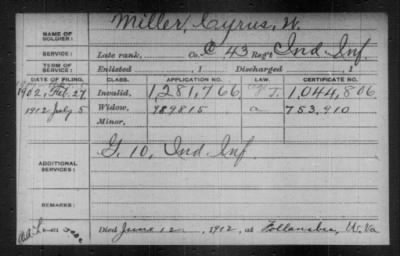 Miller, Cyrus, W.
NAME OF SOLDIER:
SERVICE: Late rank, Co. C 43 Reg't Ind. Inf.
TERM OF SERVICE: Enlisted , 1 Discharged , 1
DATE OF FILING. CLASS. APPLICATION NO. CERTIFICATE NO.
1902, Feb. 27 Invalid, 1,281,766 1,044,806
1912 July 5 Widow, 989815 753,910
Minor,
ADDITIONAL SERVICES: G. 10, Ind. Inf.
REMARKS:
Died June 12, 1912, at Follansbee, W. Va